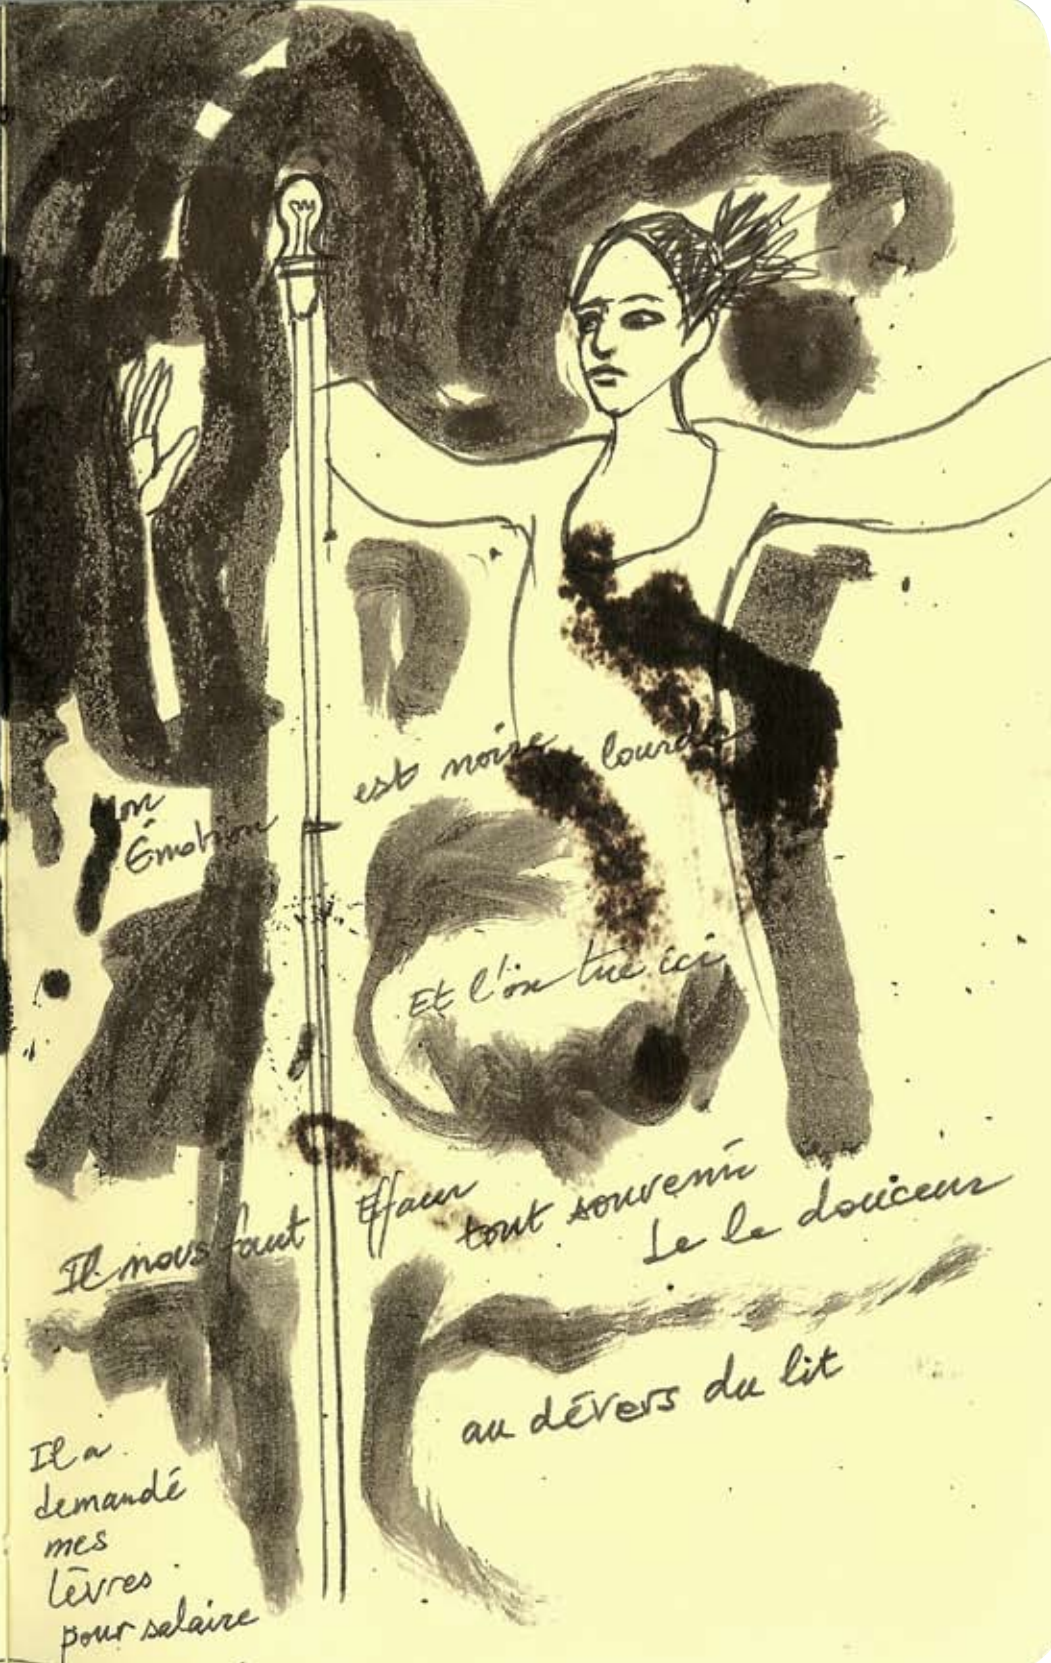 Mon
Émotion
est noire lourde
Et l'on tue ici
Il nous faut Effacer
tout souvenir
de la douceur
au dévers du lit
Il a
demandé
mes
lèvres
pour salaire